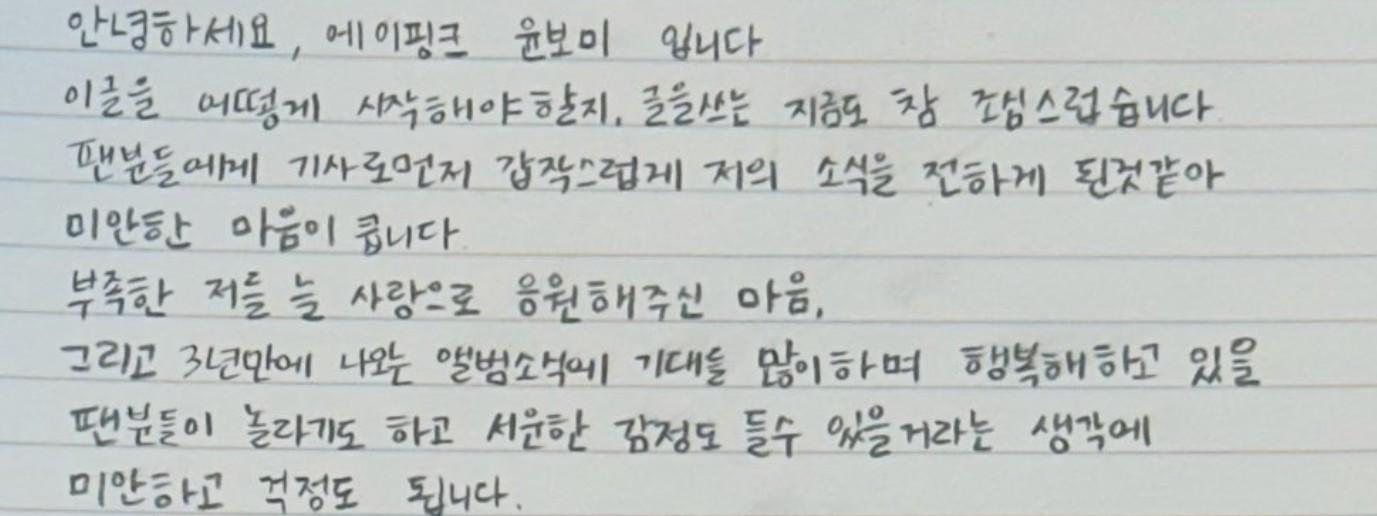 안녕하세요, 에이핑크 윤보미 입니다
이글을 어떻게 시작해야할지, 글을쓰는 지금도 참 조심스럽습니다.
팬분들에게 기사로먼저 갑작스럽게 저의 소식을 전하게 된것같아
미안한 마음이 큽니다.
부족한 저를 늘 사랑으로 응원해주신 마음,
그리고 3년만에 나오는 앨범소식에 기대를 많이하며 행복해하고 있을
팬분들이 놀라기도 하고 서운한 감정도 들수 있을거라는 생각에
미안하고 걱정도 됩니다.